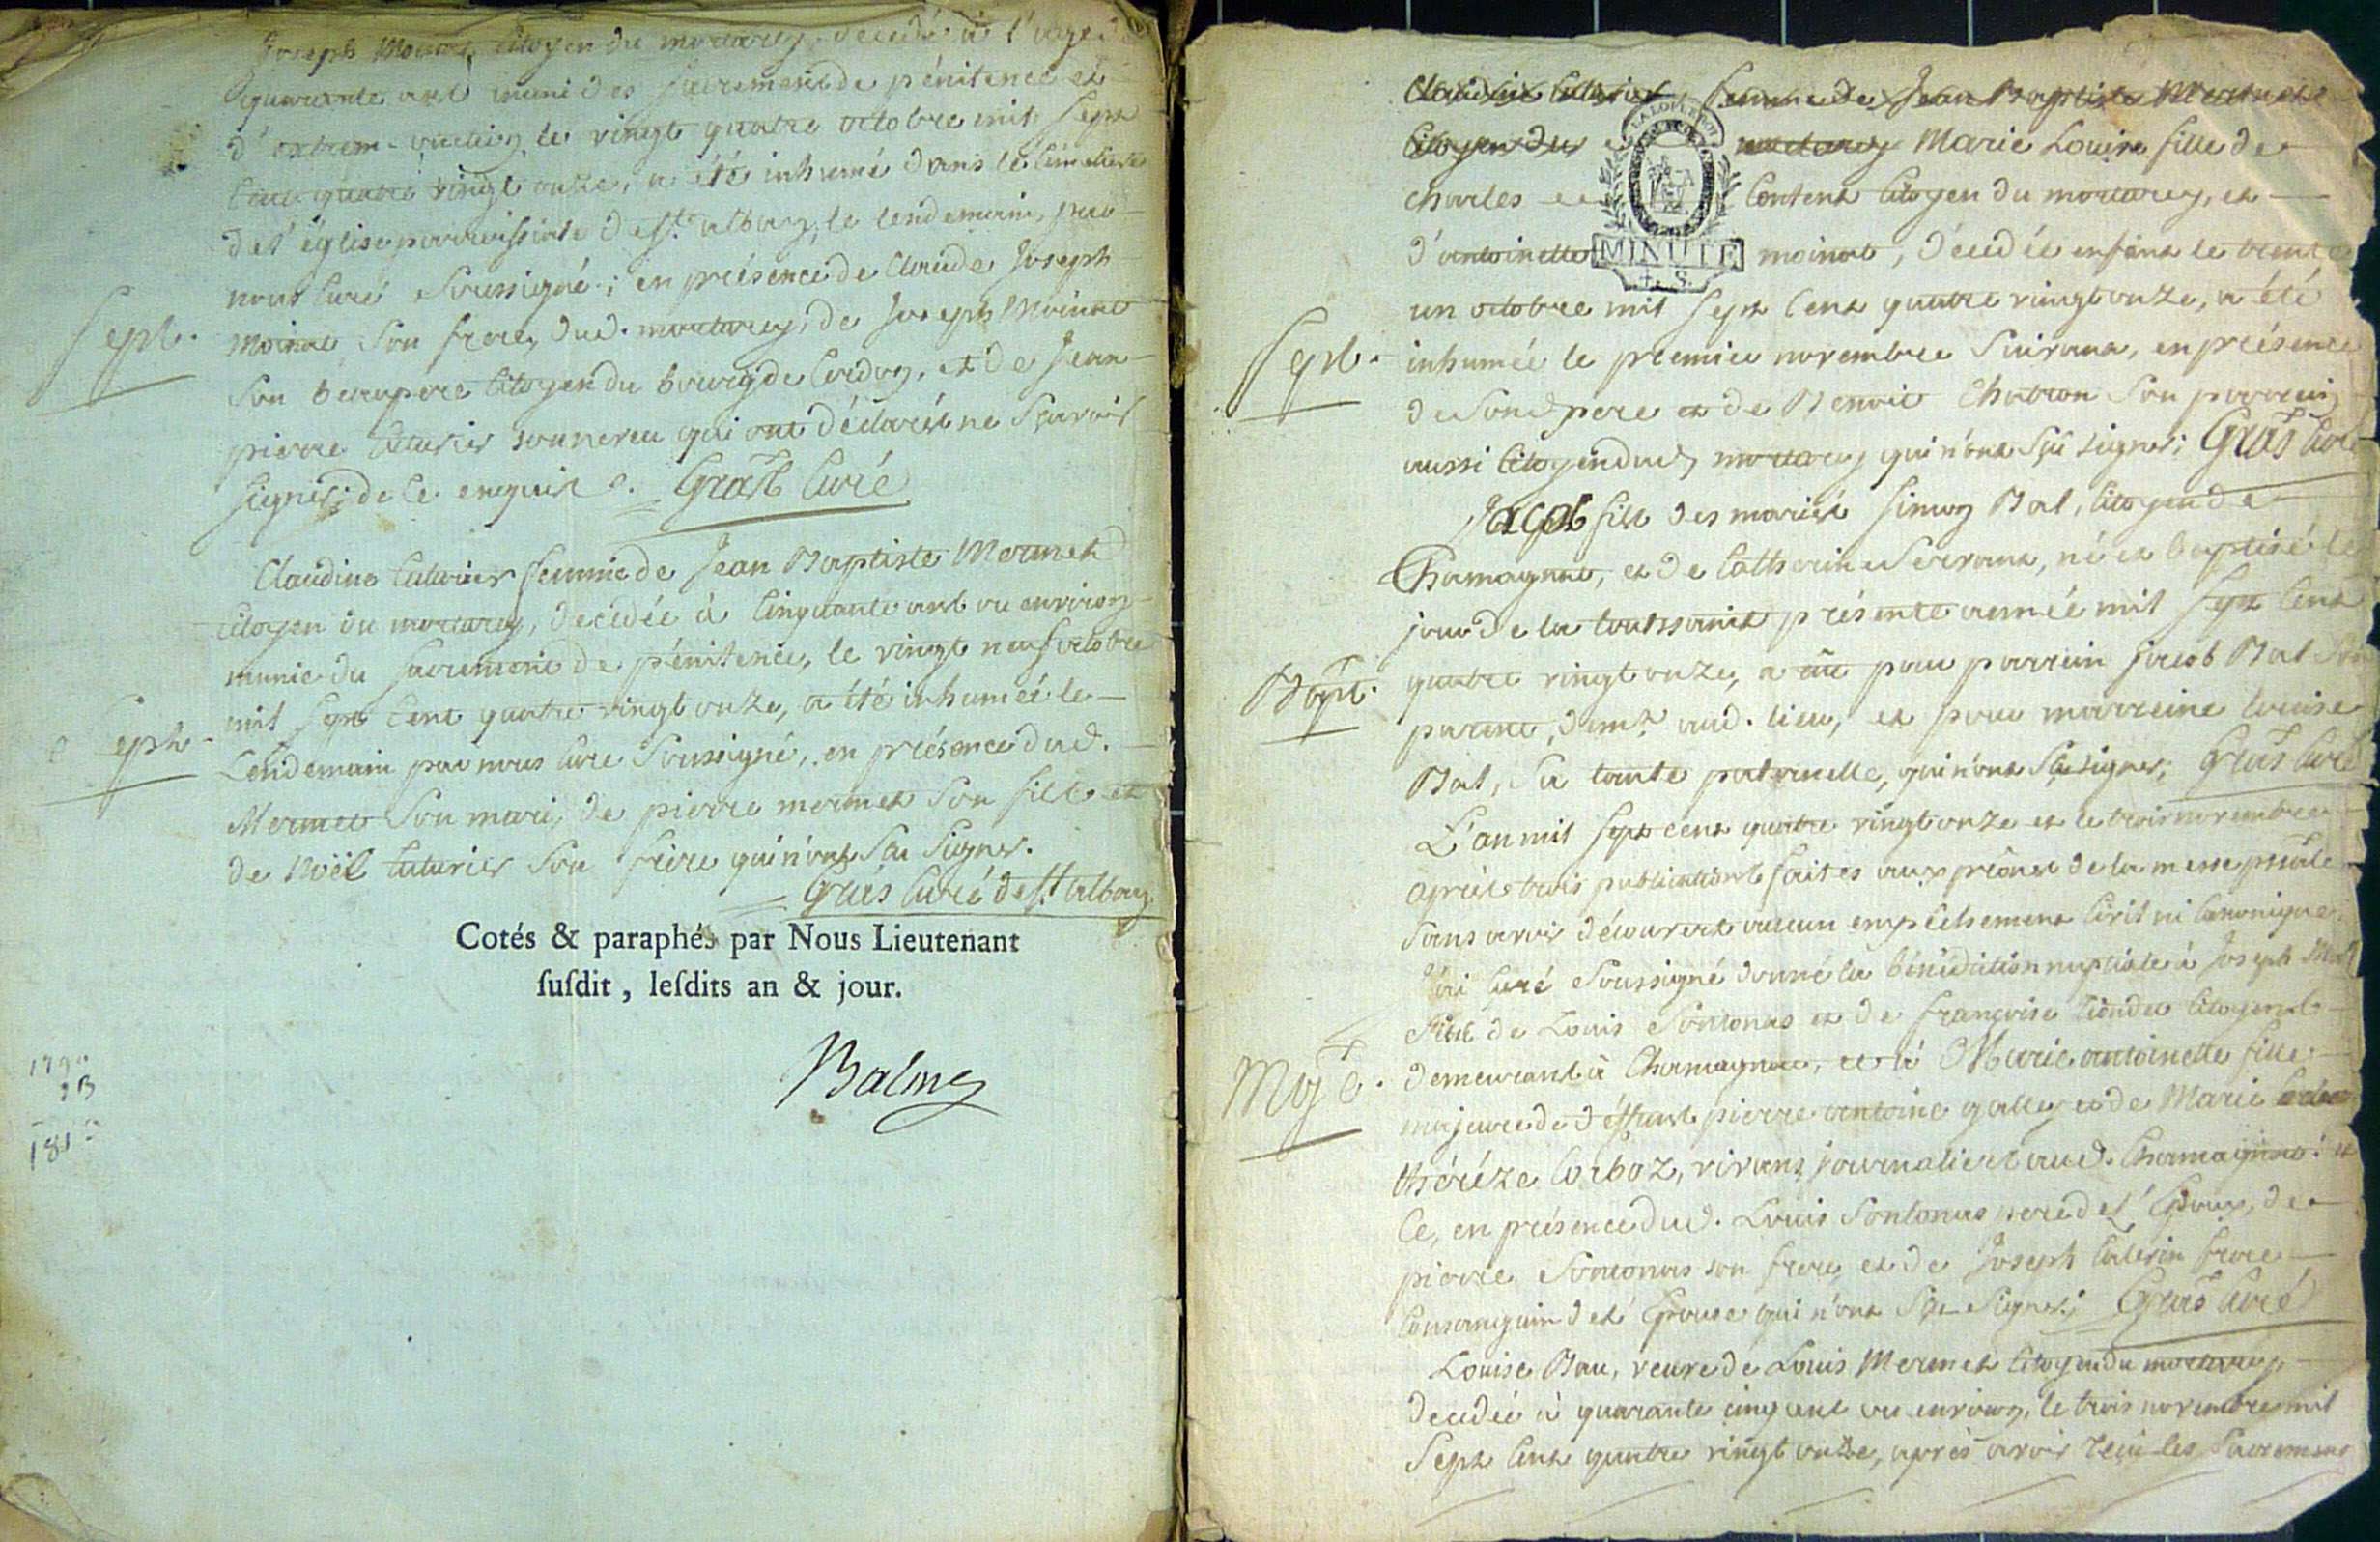 Joseph Moinat, citoyen du mortarey, décédé à l'age de
quarante ans muni des sacrements de pénitence et
d'extrem-onction, le vingt quatre octobre mil sept
cent quatre vingt onze, a été inhumé dans le cimetiere
de l'église parroissiale de st. alban, le lendemain, par
nous curé soussigné; en présence de Claude Joseph
Sept.
moinat son frere, dud. mortarey, de Joseph Moinat
son beaupere citoyen du bourg de Cerdon, et de Jean
pierre Cuturier son neveu qui ont déclarés ne sçavoir
signer; de ce enquis. Gras Curé
Claudine Cuturier femme de Jean Baptiste Mermet
citoyen du mortarey, décédée à cinquante ans ou environ
munie du sacrement de pénitence, le vingt neuf octobre
mil sept cent quatre vingt onze, a été inhumée le
Seph.
Lendemain par nous curé soussigné, en présence dud.
Mermet son mari, de pierre mermet son fils et
de Noël Cuturier son frère qui n'ont sçu signer.
Gras Curé de st alban
Cotés & paraphés par Nous Lieutenant
ſuſdit, leſdits an & jour.
Balme
179
181
Claudine Cuturier, femme de Jean Baptiste Mermet
citoyen du mortarey Marie Louise fille de
LA LOI LE ROI
charles Content citoyen du mortarey, et
d'antoinette moinat, décédée enfant le trente
MINUTE
4. S.
un octobre mil sept cent quatre vingt onze, a été
Sept.
inhumée le premier novembre suivant, en présence
de son pere et de Benoit Chatron son parrein
aussi citoyen dud. mortarey qui n'ont sçu signer; Gras Curé
Jacob fils des mariés simon Bal, citoyen de
Chamagnat, et de Catherine Servant, né et baptisé le
jour de la toussaint présente année mil sept cent
Bapt.
quatre vingt onze, a eu pour parrein jacob Bal son
parent, demt. aud. lieu, et pour marreine louise
Bal, sa tante paternelle, qui n'ont sçu signer; Gras Curé
L'an mil sept cent quatre vingt onze et le trois novembre
après trois publications faites aux prônes de la messe psiale
sans avoir découvert aucun empêchement civil ni canonique
j'ai curé soussigné donné la bénédiction nuptiale à Joseph
fils de Louis Sontonas et de françoise citoyens
Mgé.
demeurant à Chamagnat, et à Marie antoinette fille
majeure de défunt pierre antoine galley et de Marie
théréze Corboz, vivans journaliers aud. Chamagnat: et
ce, en présence dud. Louis Sontonas pere de l'Epoux, de
pierre Sontonas son frere, et de Joseph frere
consanguin de l'Epouse qui n'ont sçu signer; Gras Curé
Louise Bau, veuve de Louis Mermet citoyen du mortarey,
décédée à quarante cinq ans ou environ, le trois novembre mil
sept cent quatre vingt onze, après avoir reçu les sacremens